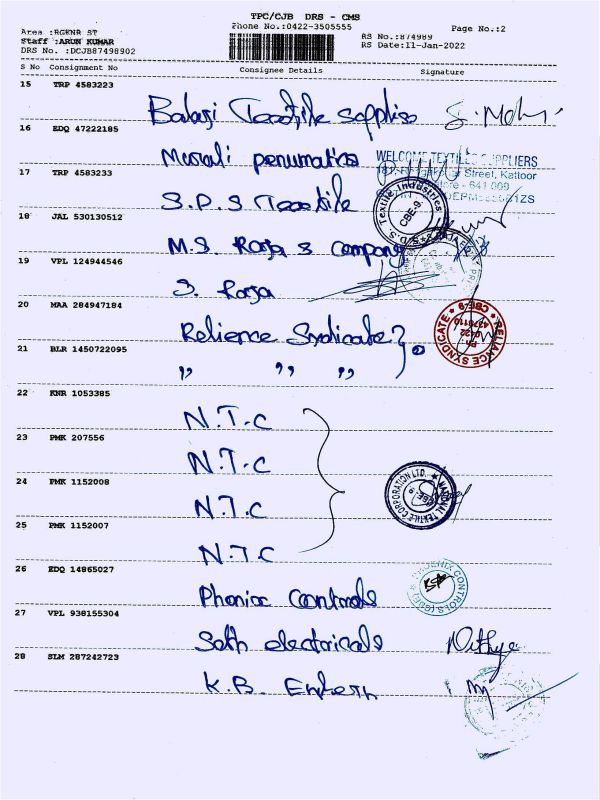 TPC/CJB DRS - CMS
Phone No.:0422-3505555
Page No.:2
Area :RGKNR ST
RS No.:874989
Staff :ARUN KUMAR
RS Date:11-Jan-2022
DRS No. :DCJB87498902
S No Consignment No Consignee Details Signature
15 TRP 4583223
Balagi Textile sappliso
16 EDQ 47222185
Murali penumatics
WELCOME TEXTILES SUPPLIERS
Street, Kattoor
- 641 009
17 TRP 4583233
S.P.S Textile
Textile Industries
CBE-9
18 JAL 530130512
M.S. Raja & Company
19 VPL 124944546
S. Raja
20 MAA 284947184
Relience Syndicate
RELIANCE SYNDICATE
Ph: 0422
CBE-9
21 BLR 1450722095
,, ,, ,,
22 KNR 1053385
N.T.C
23 PMK 207556
N.T.C
24 PMK 1152008
N.T.C
NATIONAL TEXTILE CORPORATION LTD.
25 PMK 1152007
N.T.C
26 EDQ 14865027
Phonix Controls
PHOENIX CONTROLS (CBE)
27 VPL 938155304
Seth electricals
Nithya
28 SLM 287242723
K.B.